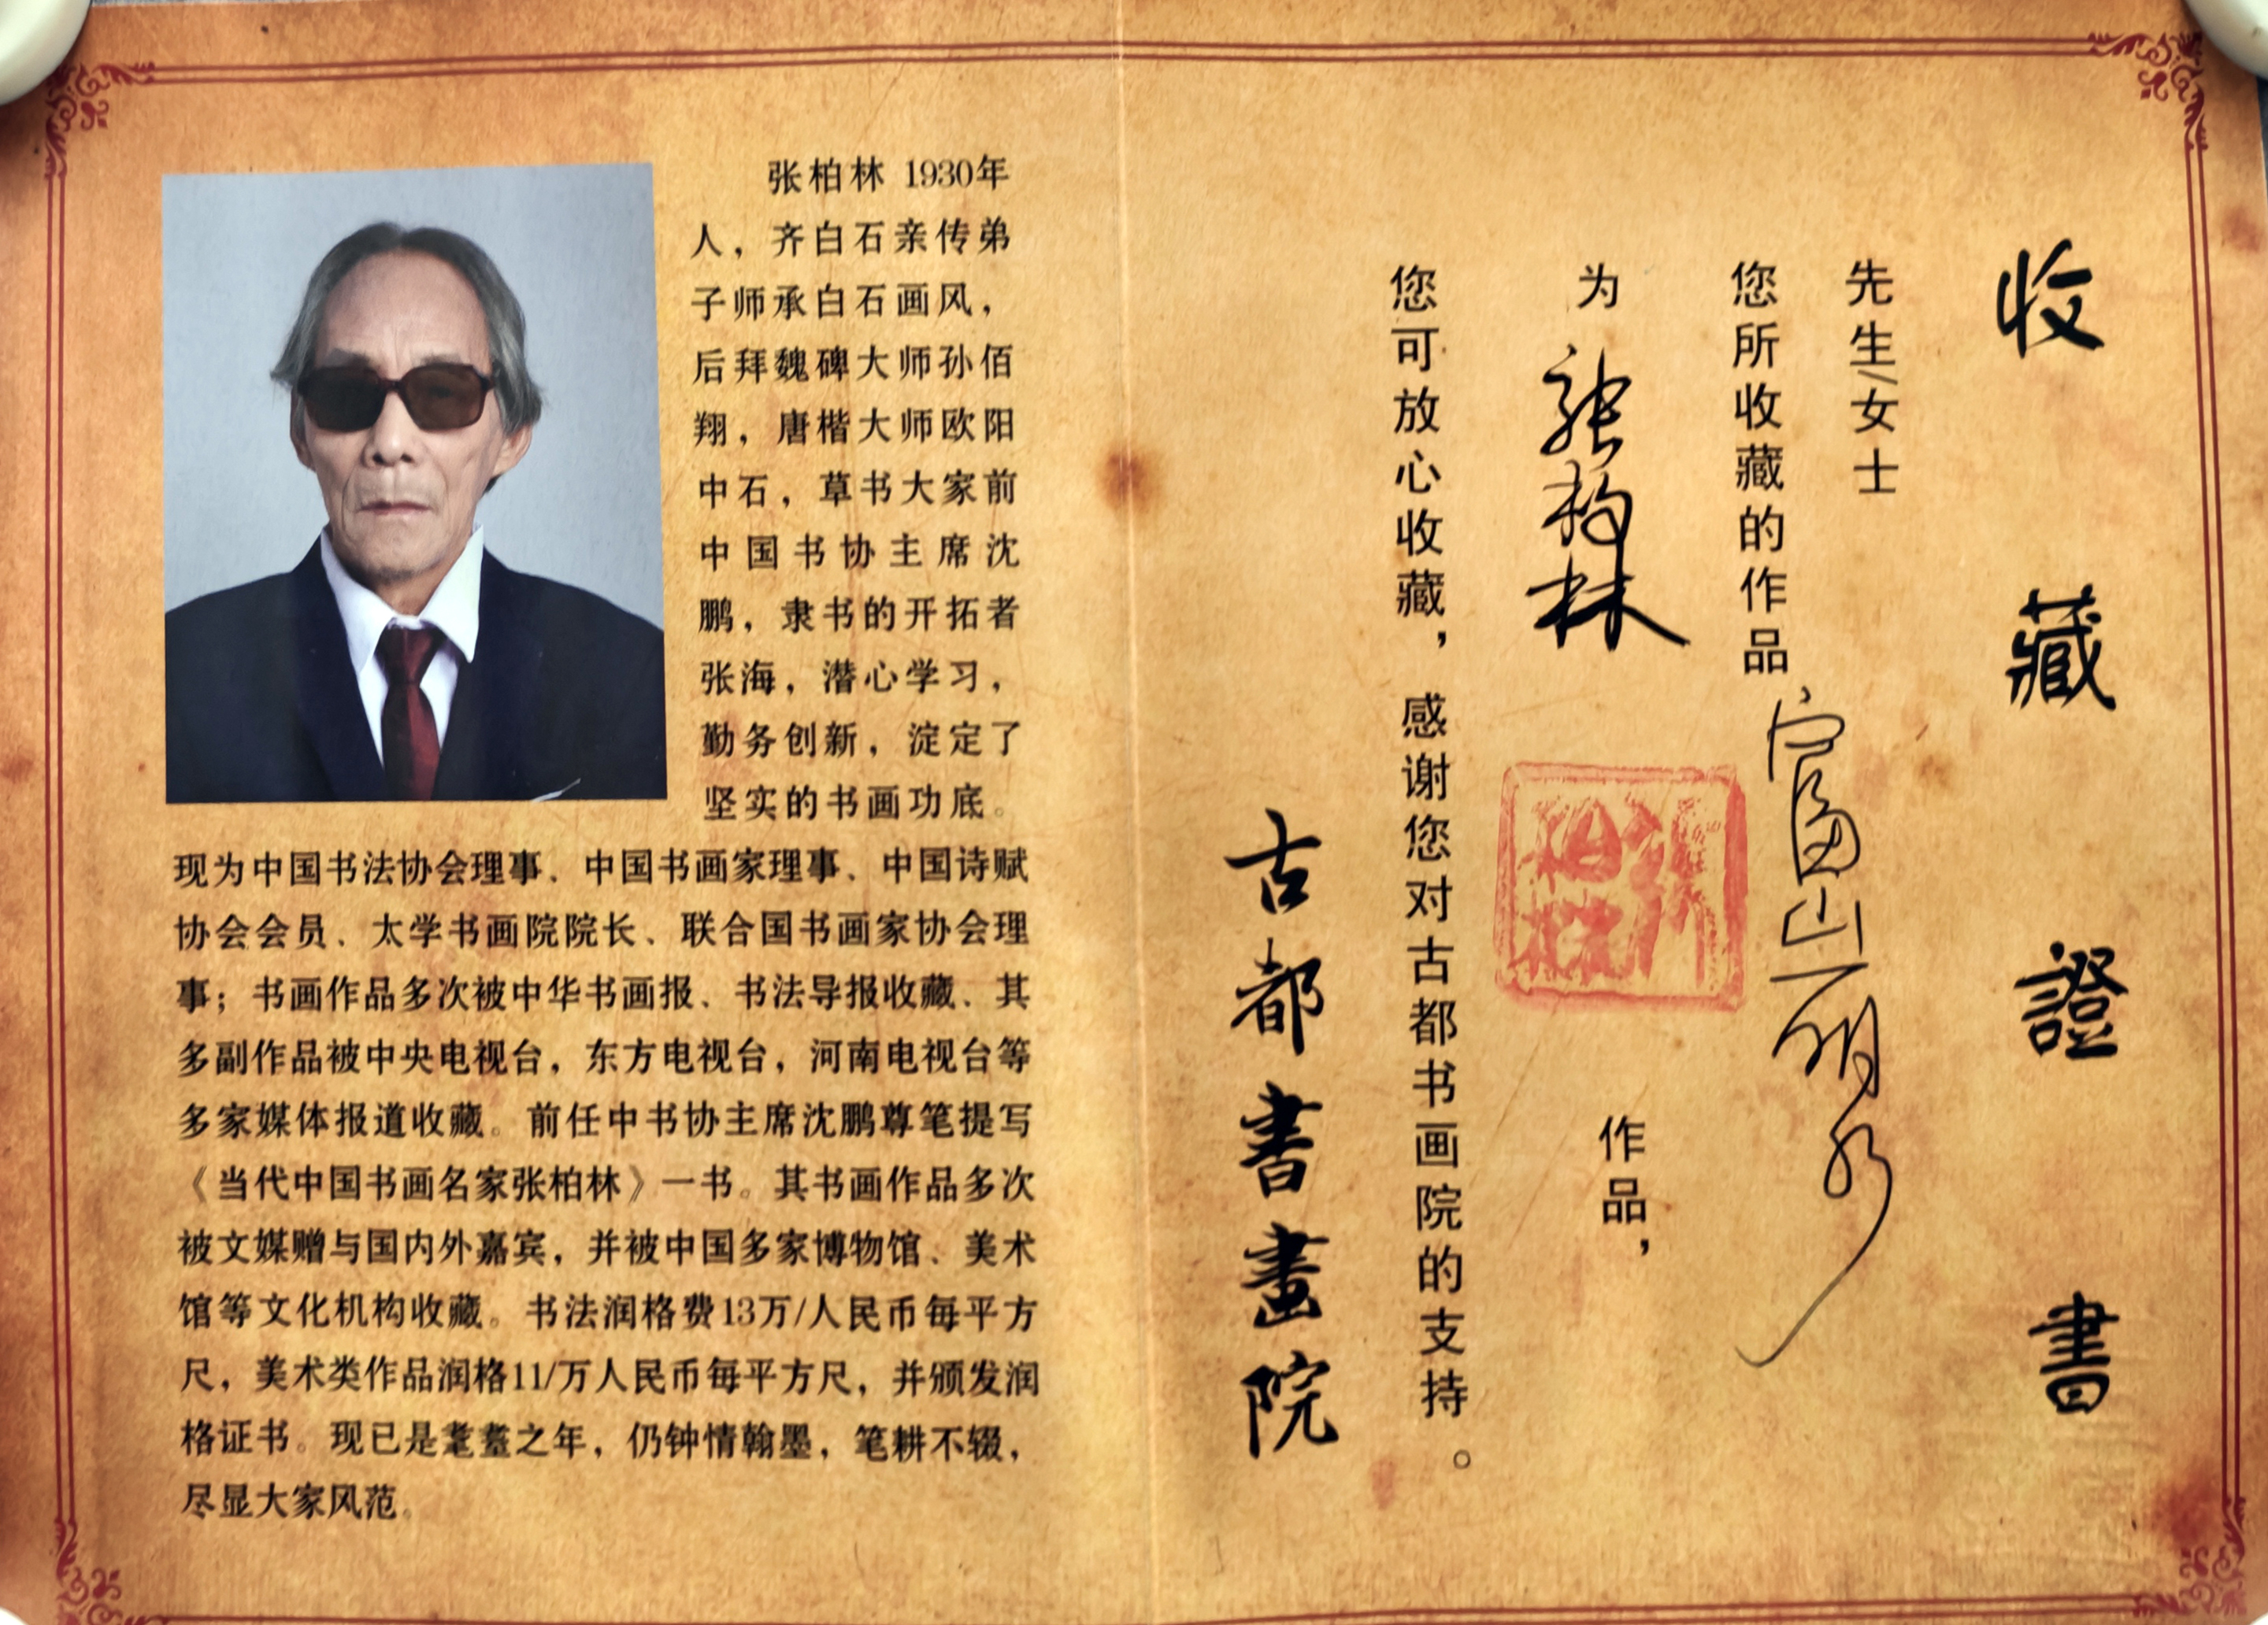 张柏林 1930年
人，齐白石亲传弟
子师承白石画风，
后拜魏碑大师孙佰
翔，唐楷大师欧阳
中石，草书大家前
中国书协主席沈
鹏，隶书的开拓者
张海，潜心学习，
勤务创新，淀定了
坚实的书画功底。
现为中国书法协会理事、中国书画家理事、中国诗赋
协会会员、太学书画院院长、联合国书画家协会理
事；书画作品多次被中华书画报、书法导报收藏、其
多副作品被中央电视台，东方电视台，河南电视台等
多家媒体报道收藏。前任中书协主席沈鹏尊笔提写
《当代中国书画名家张柏林》一书。其书画作品多次
被文媒赠与国内外嘉宾，并被中国多家博物馆、美术
馆等文化机构收藏。书法润格费13万/人民币每平方
尺，美术类作品润格11/万人民币每平方尺，并颁发润
格证书。现已是耄耋之年，仍钟情翰墨，笔耕不辍，
尽显大家风范。
收藏證書
先生/女士
您所收藏的作品，富山丽水
为张柏林作品，
您可放心收藏，感谢您对古都书画院的支持。
古都書畫院
张柏林